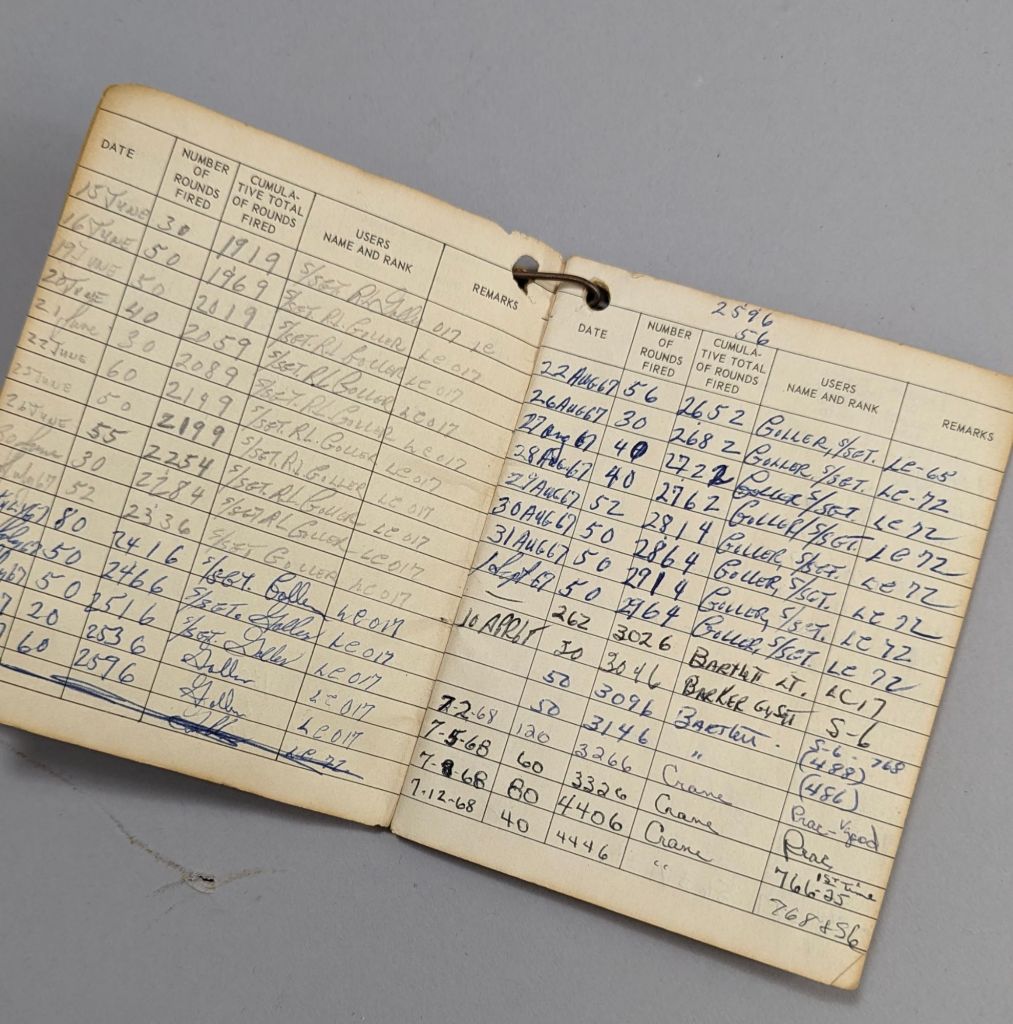 DATE
NUMBER OF ROUNDS FIRED
CUMULA-
TIVE TOTAL
OF ROUNDS
FIRED
USERS
NAME AND RANK
REMARKS
15 JUNE 30 1919 S/SGT. R.L. Goller 017 LC
16 JUNE 50 1969 S/SGT. R.L. GOLLER LC 017
19 JUNE 50 2019 S/SGT. R.L. GOLLER LC 017
20 JUNE 40 2059 S/SGT. R.L. GOLLER LC 017
21 June 30 2089 S/SGT. R.L. GOLLER LC 017
22 JUNE 60 2199 S/SGT. R.L. GOLLER LC 017
23 JUNE 50 2199 S/SGT. R.L. GOLLER LC 017
26 JUNE 55 2254 S/SGT. R.L. GOLLER LC 017
30 2284 S/SGT R L GOLLER LC 017
52 2336 S/SGT GOLLER LC 017
80 2416 S/SGT. Goller LC 017
50 2466 S/SGT. Goller LC 017
50 2516 S/SGT. Goller LC 017
20 2536 Goller LC 017
60 2596 Goller LC 017
LC 72
2596
56
DATE
NUMBER OF ROUNDS FIRED
CUMULA-
TIVE TOTAL
OF ROUNDS
FIRED
USERS
NAME AND RANK
REMARKS
22 AUG 67 56 2652 GOLLER, S/SGT. LC-65
26 AUG 67 30 2682 GOLLER, S/SGT. LC-72
27 Aug 67 40 2722 GOLLER S/SGT. LC 72
28 AUG 67 40 2762 GOLLER, S/SGT. LC 72
29 AUG 67 52 2814 GOLLER, S/SGT. LC 72
30 AUG 67 50 2864 GOLLER, S/SGT. LC 72
31 AUG 67 50 2914 GOLLER, S/SGT. LC 72
1 Sept 67 50 2964 GOLLER, S/SGT. LC 72
262 3026 BARTLETT LT. LC 17
10 APR 30 3046 BARKER GYSGT S-6
50 3096 BARTLETT. S-6 768
(488)
50 3146 " (486)
7-2-68 120 3266 Crane Prac - V/good
7-5-68 60 3326 Crane Prac
7-8-68 80 4406 Crane 1st Time
766-25
7-12-68 40 4446 " 768 & 56